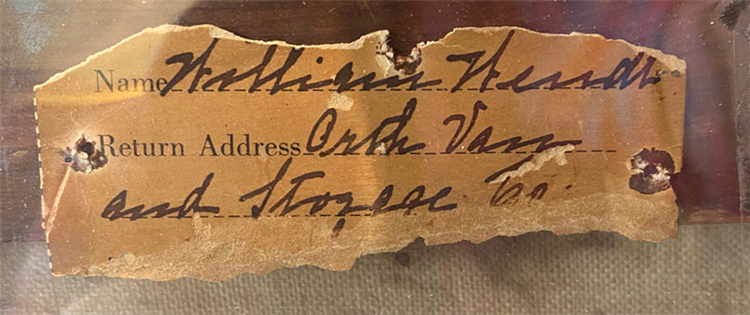 Name William Wendt
Return Address Arth Van
and Storage Co.